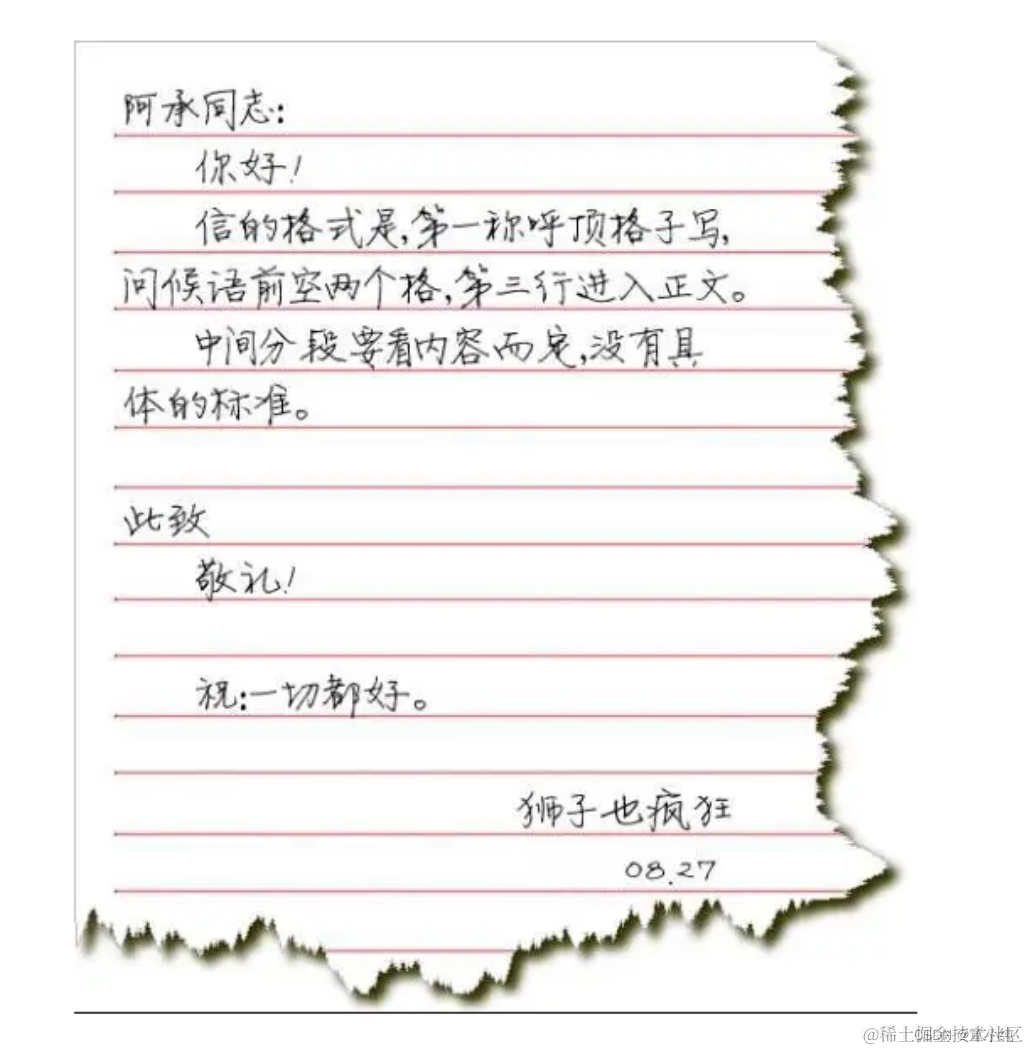 阿承同志:
你好!
信的格式是,第一称呼顶格子写,
问候语前空两个格,第三行进入正文。
中间分段要看内容而定,没有具
体的标准。
此致
敬礼!
祝:一切都好。
狮子也疯狂
08.27
@稀土掘金技术社区